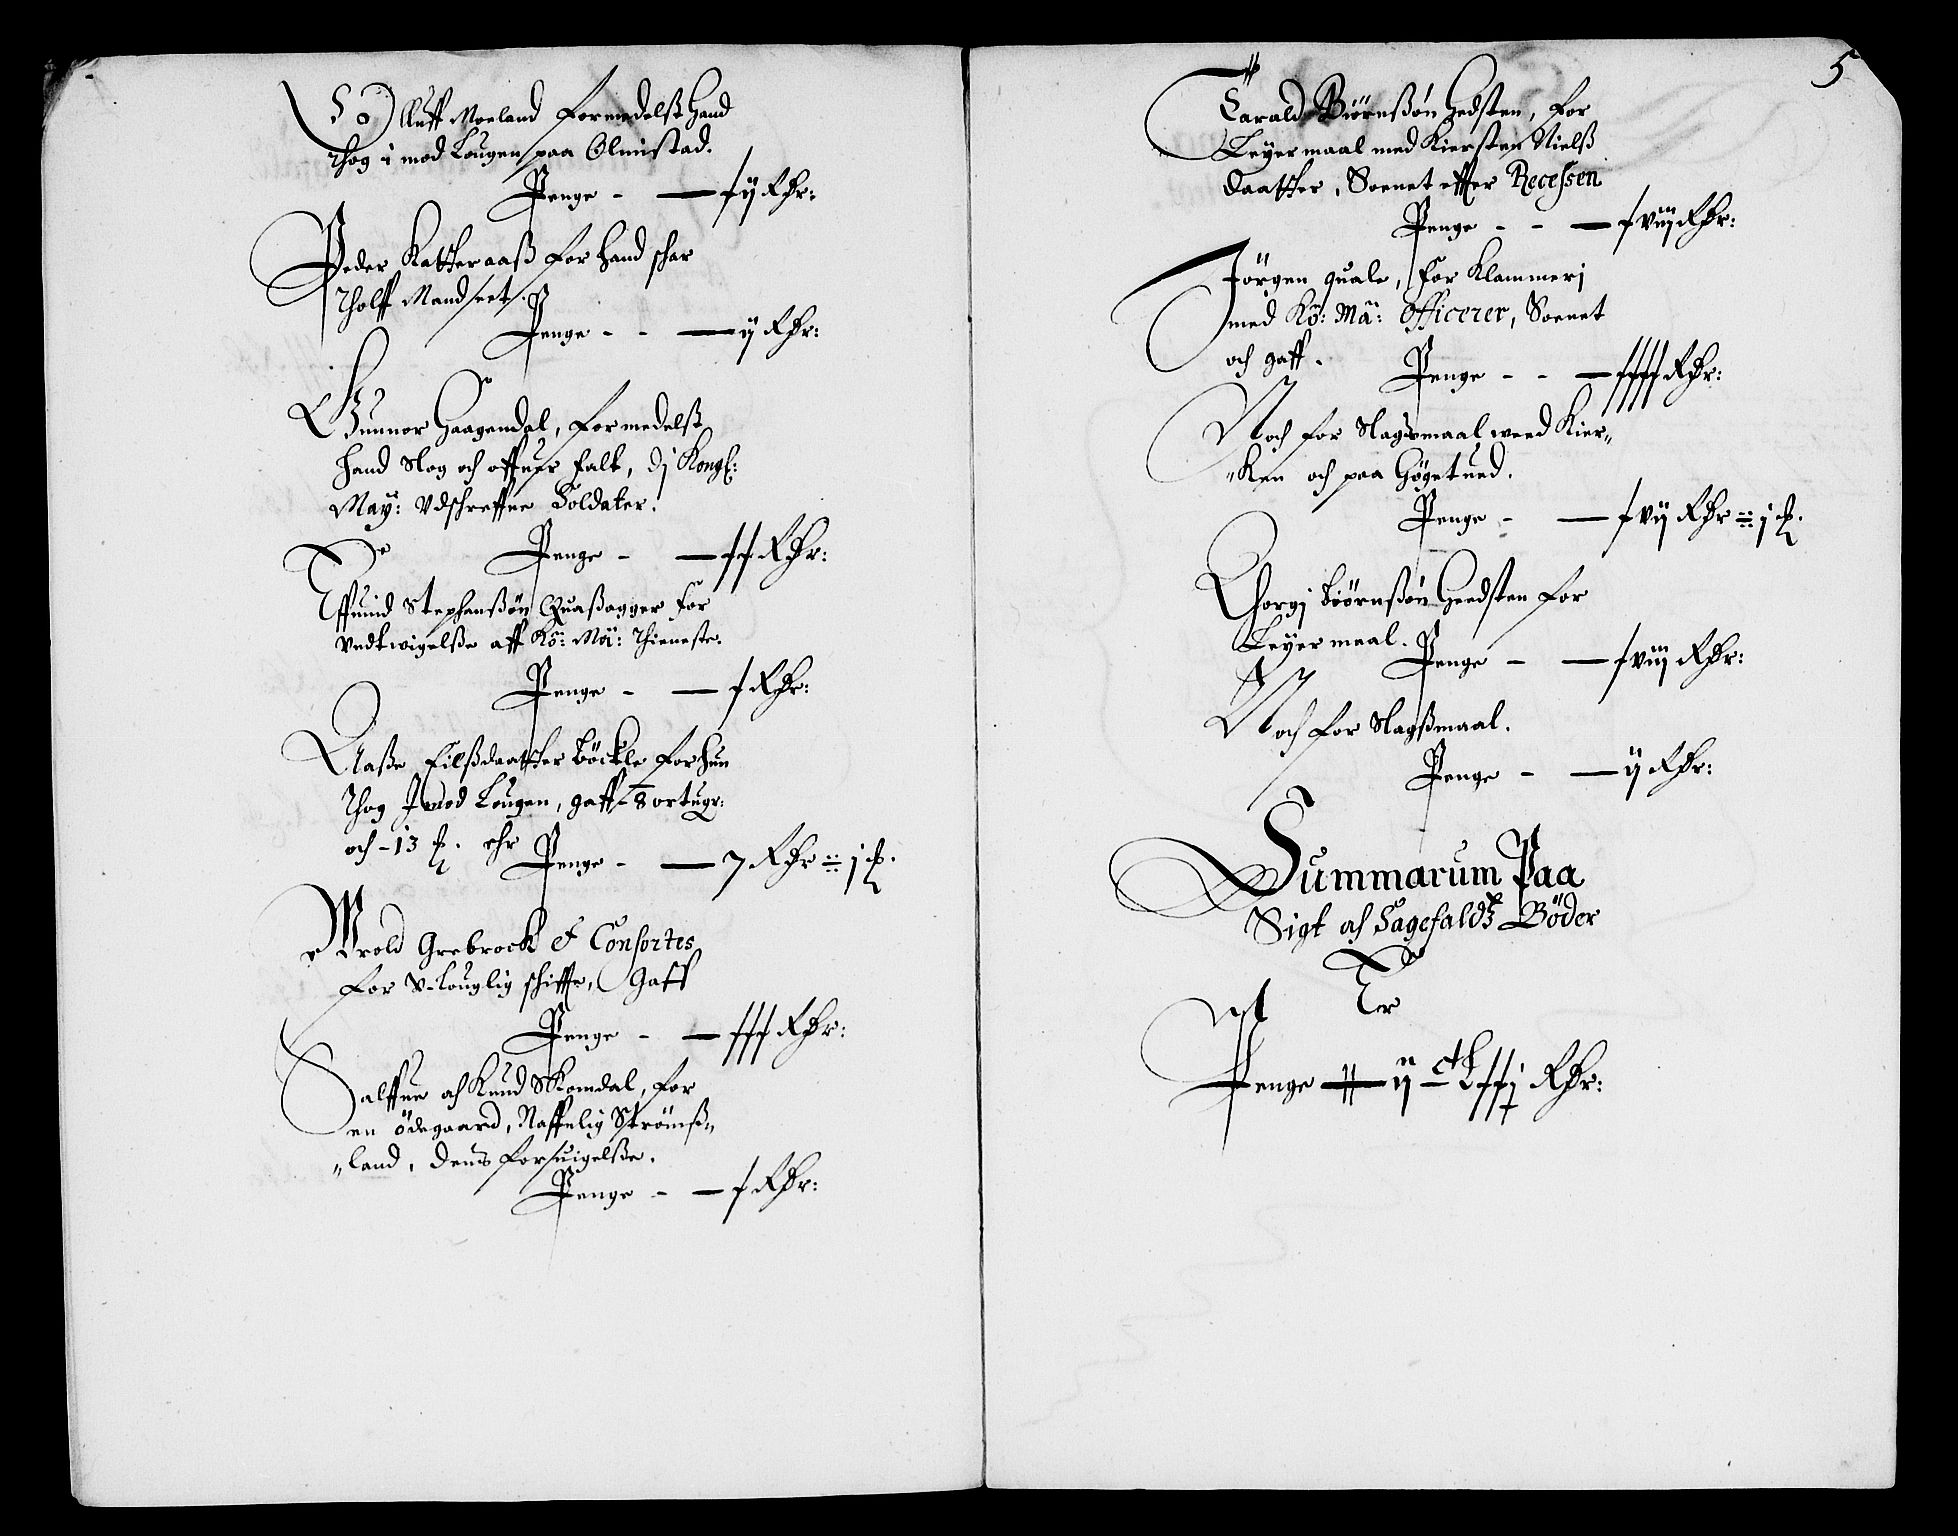 Olluff Moeland formedelst hand
thog i mod Lougen paa Olmistad.
Penge - — xij Rdr:
Peder Katteraaß for hand schar
Tholff Mandset.
Penge - - — ij Rdr:
Gunnor Haagendal, formedelst
hand slog och offuer falt, dj Kongl:
May: Vdschreffne Soldater.
Penge - — xx Rdr:
Effuind Stephanßøn Quaßagger for
Vndtwigelße aff Kö: Mä: thieneste.
Penge - — x Rdr:
Aaße Eilßdaatter Böckle for hun
thog Jmod Lougen, gaff - 8 ortugr:
och - 13 ß. ehr
Penge - — 7 Rdr :: j ß.
Wrold Grebrock & Consortes
for V-Louglig schiffte, Gaff
Penge - — xxx Rdr:
Salffue och Knud Skomdal, for
en ödegaard, Naffnlig Strömß„
„land, dens forsuigelße.
Penge - — x Rdr:
5
Tarald Biörnßön Hedsten, for
Leyermaal med Kiersten Nielß
daatter, Soenet effter Recessen
Penge - - — xviij Rdr:
Jörgen quale, for Klammerj
med Kö: Mä: Officerer, Soenet
och gaff.
Penge - - — xxxx Rdr:
Noch for Slagsmaal weed Kier„
„Ken och paa Högetued.
Penge - — xvij Rdr :: j ß.
Thorgj biörnßön Heedsten for
Leyermaal.
Penge - — xviij Rdr:
Noch for Slagßmaal.
Penge - — ij Rdr:
Summarum Paa
Sigt och Sagefaldz Böder
Er
Penge — ij ct Lxxj Rdr: